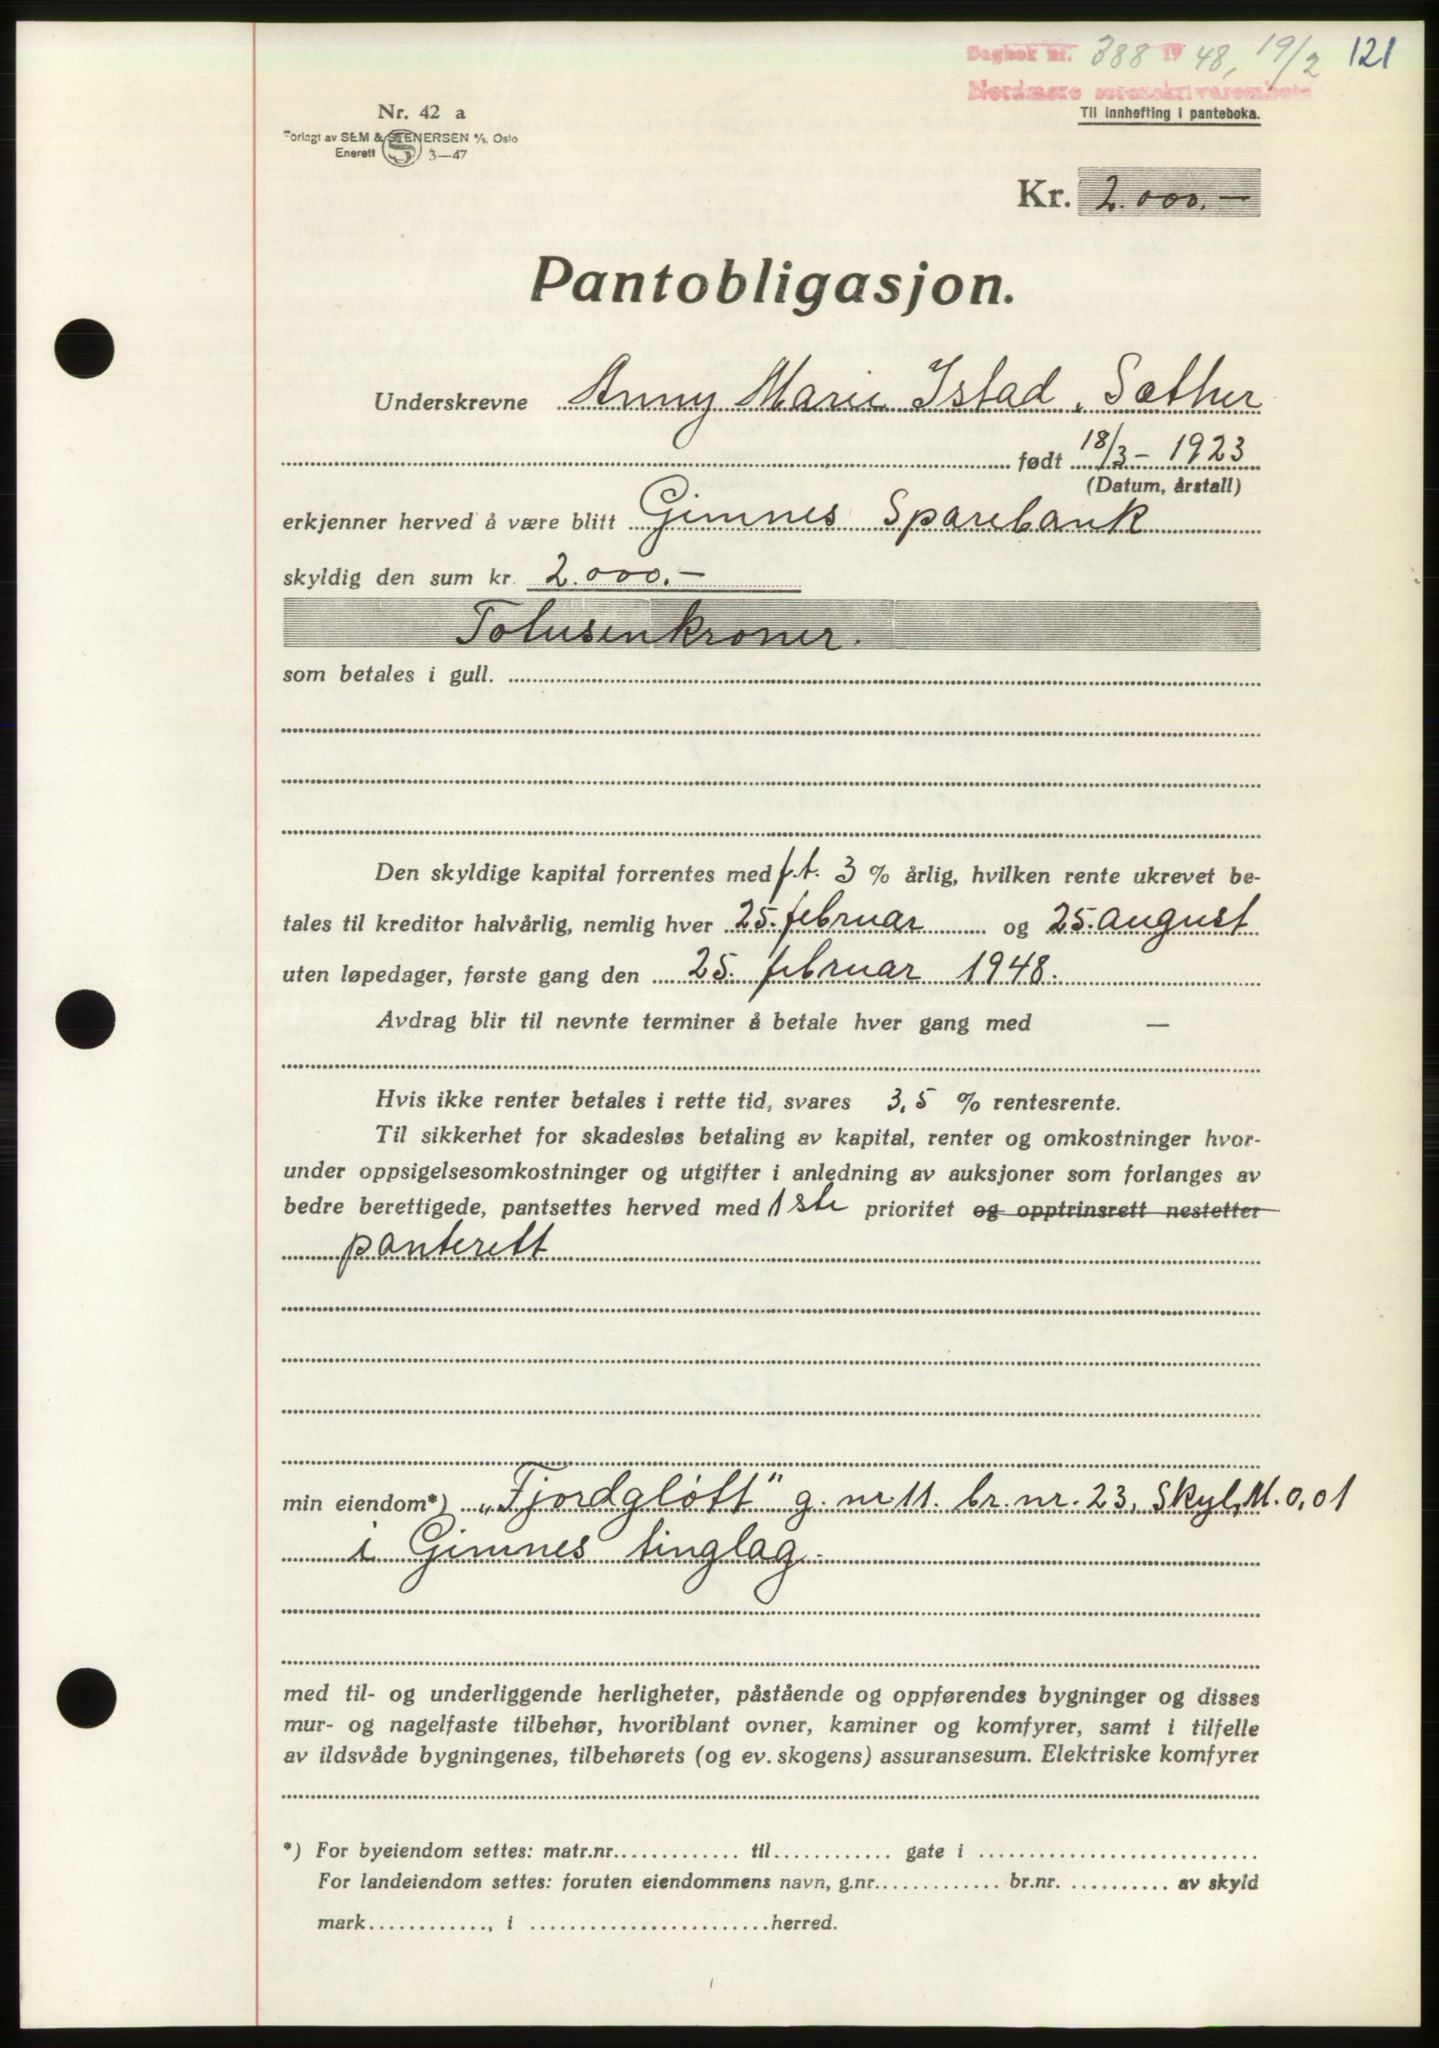 Dagbok nr. 388 1948, 19/2 121
Nordmøre sorenskriverembete
Nr. 42 a
Til innhefting i panteboka.
Forlagt av SEM & STENERSEN A/S, Oslo
Enerett S 3—47
Kr. 2.000.—
Pantobligasjon.
Underskrevne Anny Marie Istad, Sæther
født 18/3 – 1923
(Datum, årstall)
erkjenner herved å være blitt Gimnes Sparebank
skyldig den sum kr. 2.000.—
Totusenkroner.
som betales i gull.
Den skyldige kapital forrentes med f.t. 3 % årlig, hvilken rente ukrevet be-
tales til kreditor halvårlig, nemlig hver 25. februar og 25. august
uten løpedager, første gang den 25. februar 1948.
Avdrag blir til nevnte terminer å betale hver gang med —
Hvis ikke renter betales i rette tid, svares 3,5 % rentesrente.
Til sikkerhet for skadesløs betaling av kapital, renter og omkostninger hvor-
under oppsigelsesomkostninger og utgifter i anledning av auksjoner som forlanges av
bedre berettigede, pantsettes herved med 1ste prioritet og opptrinsrett nestetter
panterett
min eiendom*) „Fjordgløtt" g. nr. 11. br. nr. 23, Skyl, M. 0,01
i Gimnes tinglag.
med til- og underliggende herligheter, påstående og oppførendes bygninger og disses
mur- og nagelfaste tilbehør, hvoriblant ovner, kaminer og komfyrer, samt i tilfelle
av ildsvåde bygningenes, tilbehørets (og ev. skogens) assuransesum. Elektriske komfyrer
*) For byeiendom settes: matr.nr. til gate i
For landeiendom settes: foruten eiendommens navn, g.nr. br.nr. av skyld
mark , i herred.